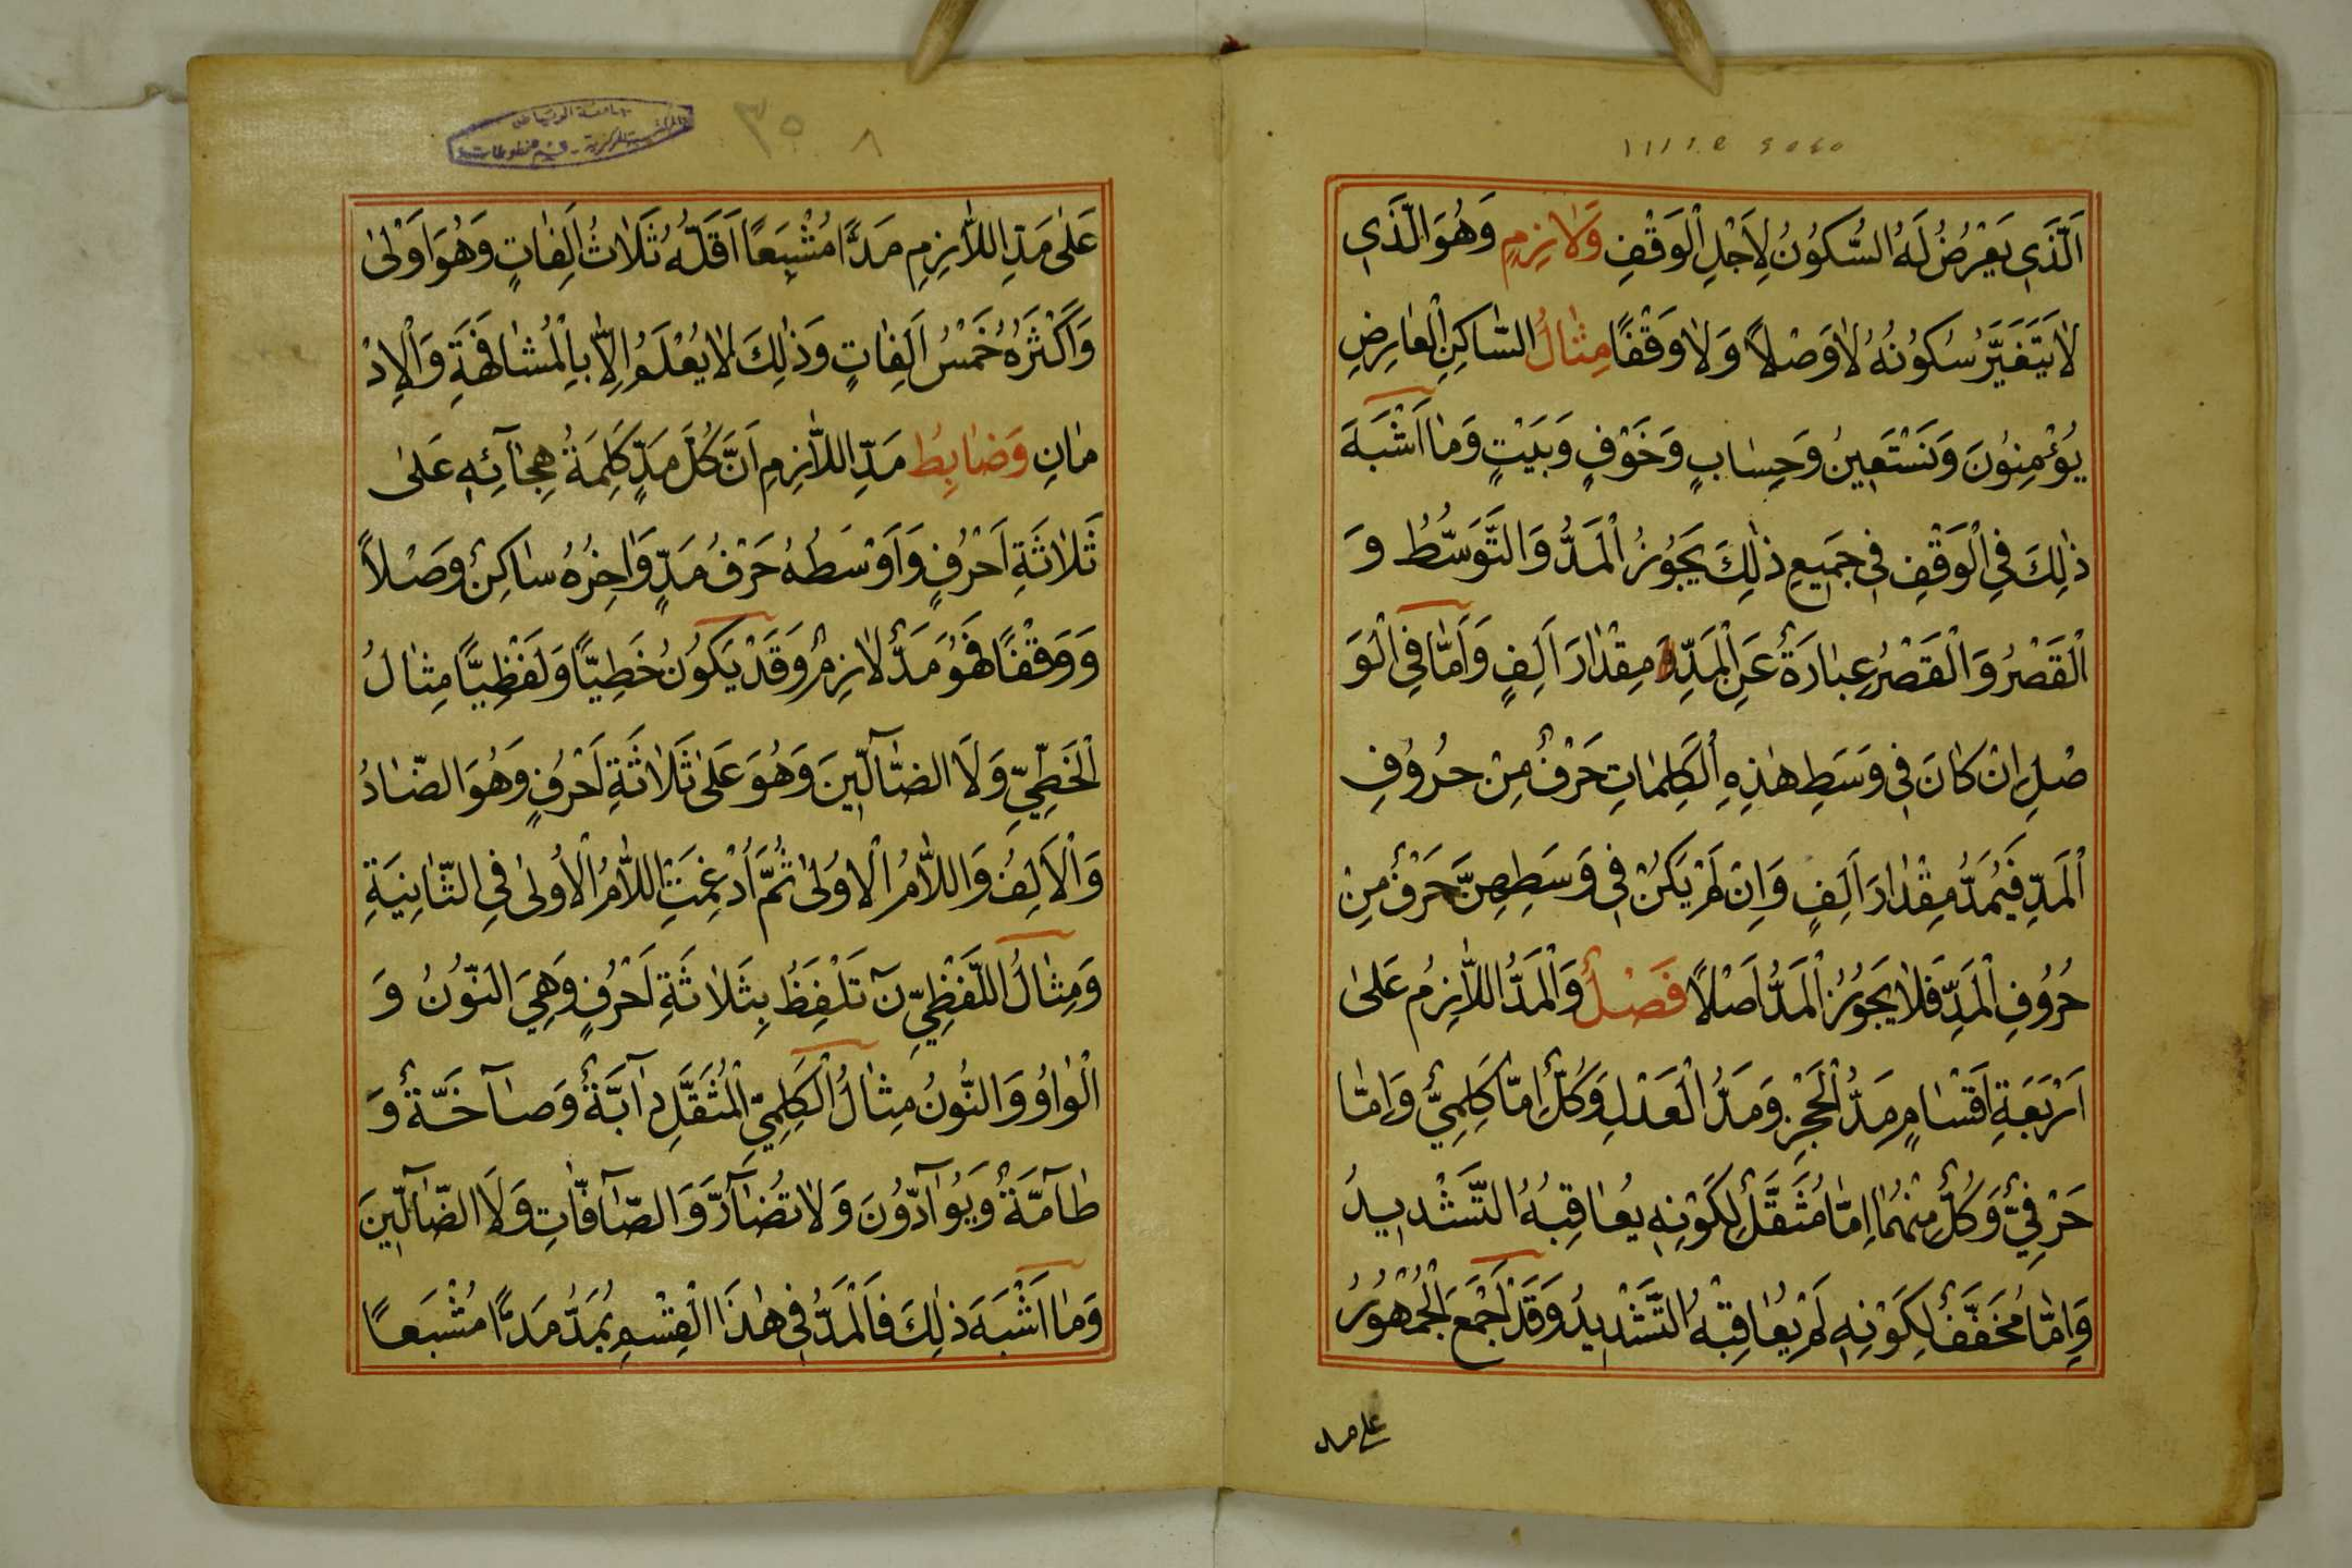 اَلَّذَي يَعْرُضُ لَهُ السُّكُونُ لِاَجْلِ الْوَقْفِ وَلَازِمٍ وَهُوَ الَّذَي
لَا يَتَغَيَّرُ سُكُونُهُ لَا وَصْلاً وَلَا وَقْفًا مِثَالُ السَّاكِنِ الْعَارِضِ
يُؤْمِنُونَ وَنَسْتَعِينُ وَحِسَابٍ وَخَوْفٍ وَبَيْتٍ وَمَا اَشْبَهَ
ذٰلِكَ فِي الْوَقْفِ فِي جَمَيعِ ذٰلِكَ يَجَوُزُ الْمَدُّ وَالتَّوَسُّطُ وَ
الْقَصْرُ وَالْقَصْرُ عِبَارَةٌ عَنِ الْمَدِّ مِقْدَارَ اَلِفٍ وَاَمَّا فِي الْوَ
صْلِ اِنْ كَانَ فِي وَسَطِ هٰذِهِ الْكَلِمَاتِ حَرْفٌ مِنْ حُرُوُفِ
الْمَدِّ فَيُمَدُّ مِقْدَارَ اَلِفٍ وَاِنْ لَمْ يَكُنْ فِي وَسَطِهِنَّ حَرْفٌ مِنْ
حُرُوُفِ الْمَدِّ فَلَا يَجَوُزُ الْمَدُّ اَصْلاً فَصْلٌ وَالْمَدُّ اللَّازِمُ عَلىٰ
اَرْبَعَةِ اَقْسَامٍ مَدُّ الْحَجْزِ وَمَدُّ الْعَدْلِ وَكُلٌّ اِمَّا كَلِمِيٌّ وَاِمَّا
حَرْفِيٌّ وَكُلٌّ مِنْهُمَا اِمَّا مُثَقَّلٌ لِكَوْنِهِ يُعَاقِبُهُ التَّشْدِيدُ
وَاِمَّا مُخَفَّفٌ لِكَوْنِهِ لَمْ يُعَاقِبْهُ التَّشْدِيدُ وَقَدْ اَجْمَعَ الْجُمْهُوُرُ
على مد
عَلىٰ مَدِّ اللَّازِمِ مَدًّا مُشْبِعًا اَقَلُّهُ ثَلَاثُ اَلِفَاتٍ وَهُوَ اَوْلىٰ
وَاَكْثَرُهُ خَمْسُ اَلِفَاتٍ وَذٰلِكَ لَا يُعْلَمُ اِلَّا بِالْمُشَافَهَةِ وَالْاِدْ
مَانِ وَضَابِطُ مَدِّ اللَّازِمِ اَنَّ كُلَّ مَدٍّ كَلِمَةُ هِجَآئِهِ عَلىٰ
ثَلَاثَةِ اَحْرُفٍ وَاَوْسَطُهُ حَرْفُ مَدٍّ وَاٰخِرُهُ سَاكِنٌ وَصْلاً
وَوَقْفًا فَهُوَ مَدٌّ لَازِمٌ وَقَدْ يَكُونُ خَطِيًّا وَلَفْظِيًّا مِثَالُ
الْخَطِّيِّ وَلَا الضَّآلِّينَ وَهُوَ عَلىٰ ثَلَاثَةِ اَحْرُفٍ وَهُوَ الضَّادُ
وَالْاَلِفُ وَاللَّامُ الْاوُلىٰ ثُمَّ اُدْغِمَتِ اللَّامُ الْاُولىٰ فِي الثَّانِيَةِ
وَمِثَالُ اللَّفْظِيِّ نٓ تَلْفِظُ بِثَلَاثَةِ اَحْرُفٍ وَهِيَ النُّونُ وَ
الْوَاوُ وَالنُّونُ مِثَالُ الْكَلِمِيِّ الْمُثَقَّلِ دَآبَّةٌ وَصَآخَّةٌ وَ
طَآمَّةٌ وَيُوَآدُّونَ وَلَا تُضَآرَّ وَالصَّآفَّاتِ وَلَا الضَّآلِّينَ
وَمَا اَشْبَهَ ذٰلِكَ فَالْمَدُّ فِي هٰذَا الْقِسْمِ يُمَدُّ مَدًّا مُشْبَعًا